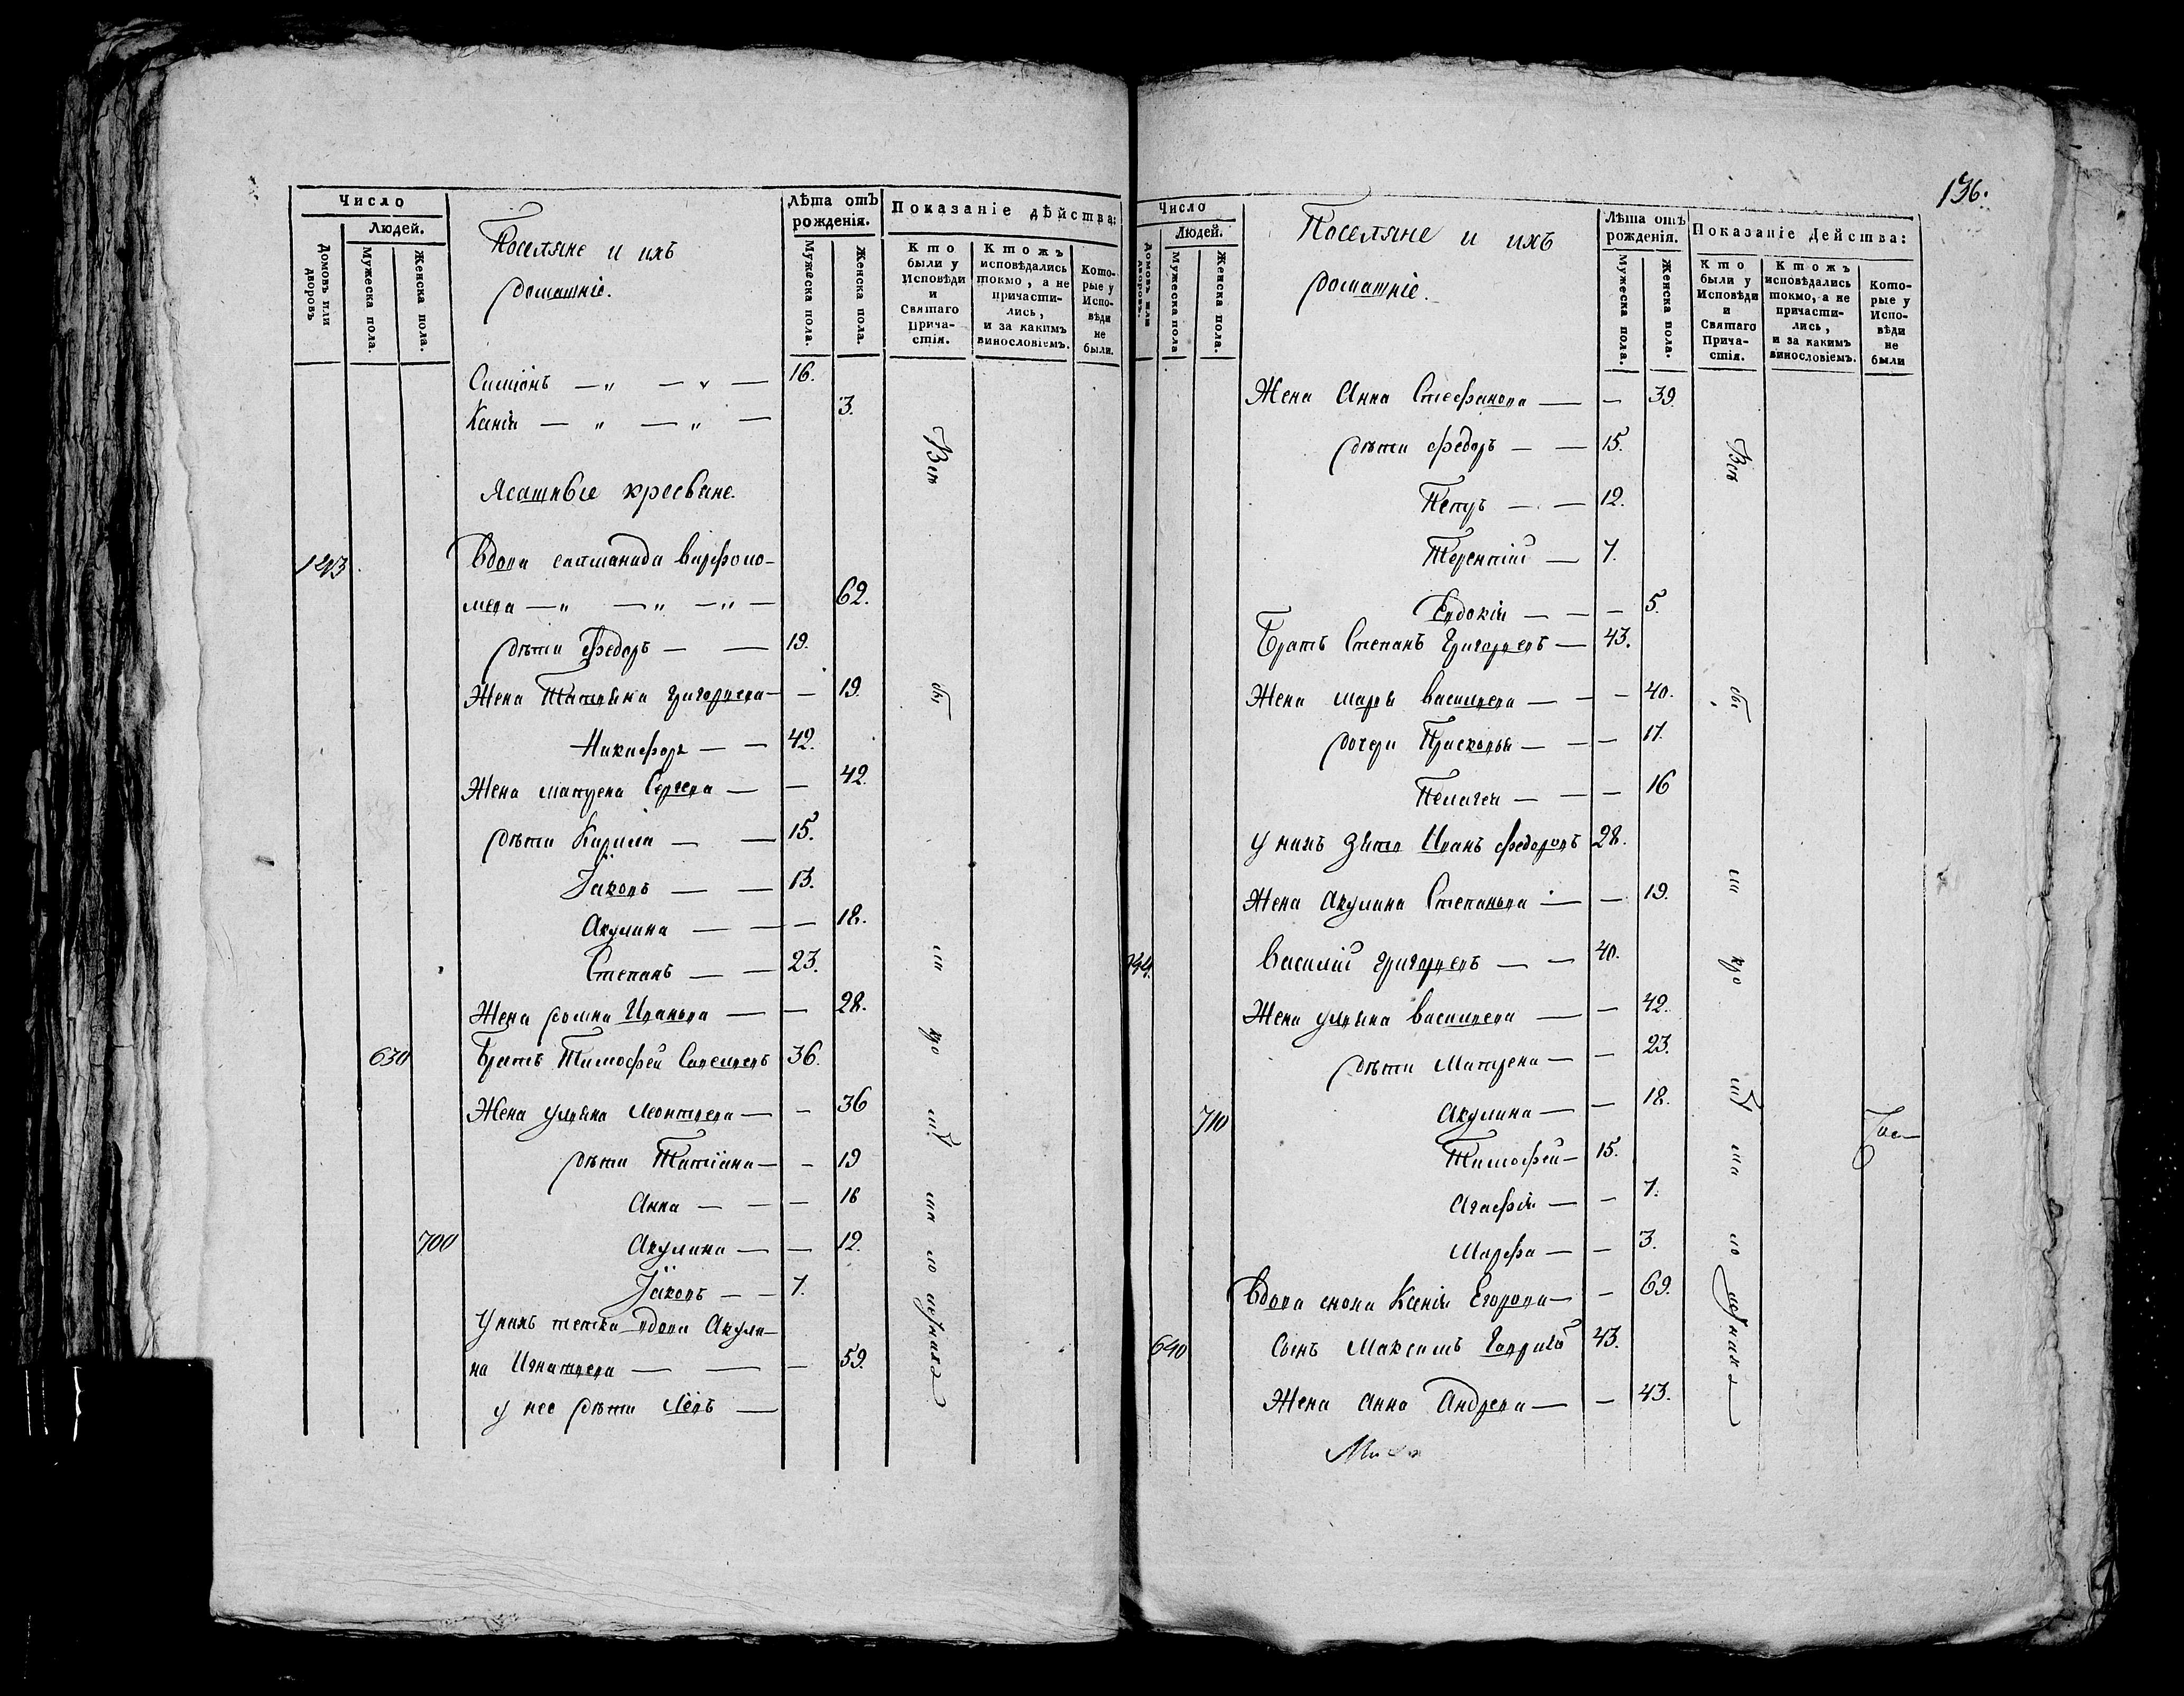 Число
Людей.
Домовъ или дворовъ
Мужеска пола.
Женска пола.
Поселяне и ихъ
домашніе.
Лѣта отъ
рожденія.
Мужеска пола.
Женска пола.
Показаніе дѣйства:
Кто
были у
Исповѣди
и
Святаго
Прича-
стія.
Ктожъ
исповѣдались
токмо, а не
причасти-
лись,
и за какимъ
винословіемъ.
Кото-
рые у
Испо-
вѣди
не
были.
Симіонъ — „ — „ — 16.
Ксенія — „ — „ — 3.
Ясашные кресьяне.
Вдова Варфоло-
меева — „ — „ — „ — 62.
дѣти Федоръ — — 19.
Жена Татьяна Григорьева — — 19.
Никифоръ — — 42.
Жена Матрена Сергева — — 42.
дѣти Кирила — — 15.
Іаковъ — — 13.
Акулина — — — 18.
Степанъ — — 23.
Жена домна Иванова — — 28.
630 Братъ Тимофей Савельевъ 36.
Жена Ульяна Леонтьева — — 36
дѣти Татіана — — 19
Анна — — — 16
700 Акулина — — 12.
Іаковъ — — 7.
У нихъ тетка вдова Акули-
на Игнатьева — — — 59.
у нее дѣти —
Всѣ
бы
ли
ко
196.
Число
Людей.
Домовъ или дворовъ.
Мужеска пола
Женска пола.
Поселяне и ихъ
домашніе.
Лѣта отъ
рожденія.
Мужеска пола.
Женска пола.
Показаніе Действа:
Кто
были у
Исповѣди
и
Святаго
Прича-
стія.
Ктожъ
исповѣдались
токмо, а не
причасти-
лись,
и за какимъ
винословіемъ.
Кото-
рые у
Испо-
вѣди
не
были
Жена Анна Стефанова — — 39.
дѣти Федоръ — — 15.
Петръ — — 12.
Терентій — 7.
Евдокія — — — 5.
Братъ Степанъ Григорьевъ — 43.
Жена Марья Васильева — — — 40.
дочери Прасковья — — — 17.
Пелагея — — — 16
У нихъ зять Иванъ Федоровъ 28.
Жена Акулина Степанова — — 19.
Василій Григорьевъ — — 40.
Жена Ульяна Васильева — — 42.
дѣти Матрена — — 23.
710 Акулина — — 18.
Тимофей — 15.
Агафія — — 7.
Марфа — — 3.
Вдова сноха Ксенія Егорова — — 69.
640 Сынъ Максимъ 43.
Жена Анна Андрева — — 43.
Всѣ
бы
ли